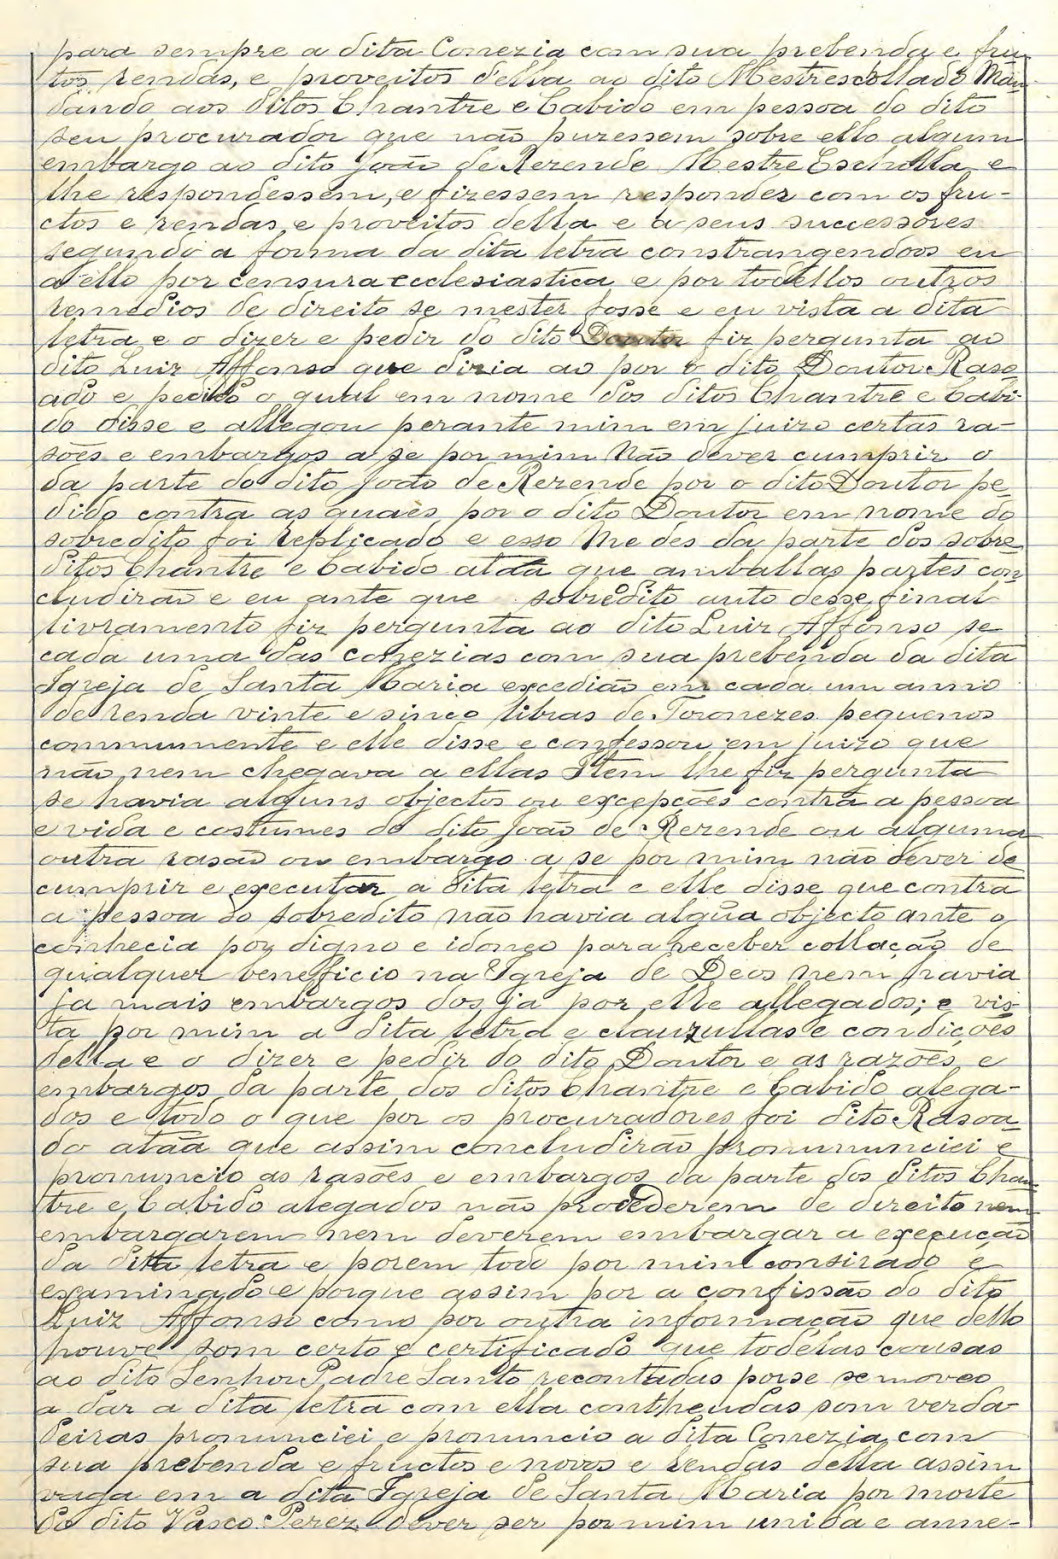 para sempre a dita Conezia com sua prebenda e fru-
tos rendas, e proveitos della ao dito Mestrescollado Man
dando aos ditos Chantre e Cabido em pessoa do dito
seu procurador que não puzessem sobre ello algum
embargo ao dito João de Rezende Mestre Escholla, e
lhe respondessem, e fizessem responder com os fru-
ctos e rendas e proveitos della e a seus successores
segundo a forma da dita letra constrangendoos eu
a ello por censura ecclesiastica e por todollos outros
remedios de direito se mester fosse e eu vista a dita
letra e o dizer e pedir do dito Doutor fiz pergunta ao
dito Luiz Affonso que diria ao por o dito Doutor Raso
ado e pedido o qual em nome dos ditos Chantre e Cabi-
do disse e allegou perante mim em juizo certas ra-
sões e embargos a se por mim não dever cumprir o
da parte do dito João de Rezende por o dito Doutor pe-
dido contra as quaes por o dito Doutor em nome do
sobredito foi replicado e esso me des da parte dos sobre-
ditos Chantre e Cabido ataa que amballas partes con
cludirão e eu ante que sobredito auto desse final
livramento fiz pergunta ao dito Luiz Affonso se
cada uma das conezias com sua prebenda da dita
Igreja de Santa Maria excedião em cada um anno
de renda vinte e sinco libras de Toronezes pequenos
communmente e elle disse e confessou em juizo que
não nem chegava a ellas Item lhe fiz pergunta
se havia alguns objectos ou excepções contra a pessoa
e vida e costumes do dito João de Rezende ou alguma
outra rasão ou embargo a se por mim não dever de
cumprir e executar a dita letra e elle disse que contra
a pessoa do sobredito não havia algũa objecto ante o
conhecia por digno e idoneo para receber collação de
qualquer beneficio na Egreja de Deos nem havia
ja mais embargos dos ja por elle allegados; e vis-
ta por mim a dita letra e clauzullas e condições
della e o dizer e pedir do dito Doutor e as razões e
embargos da parte dos ditos Chantre e Cabido alega-
dos e todo o que por os procuradores foi dito Rasoa-
do ataa que assim concludirão pronunciei e
pronuncio as rasões e embargos da parte dos ditos Chan-
tre e Cabido alegados não procederem de direito nem
embargarem nem deverem embargar a execução
da dita letra e porem todo por mim consirado e
examinado e porque assim por a confissão do dito
Luiz Affonso como por outra informação que dello
houve som certo e certificado que todelas cousas
ao dito Senhor Padre Santo recontadas porse se moveo
a dar a dita letra com ella contheudas som verda-
deiras pronunciei e pronuncio a dita Conezia com
sua prebenda e fructos e novos e rendas della assim
vaga em a dita Igreja de Santa Maria por morte
do dito Vasco Perez dever ser por mim unida e anne-